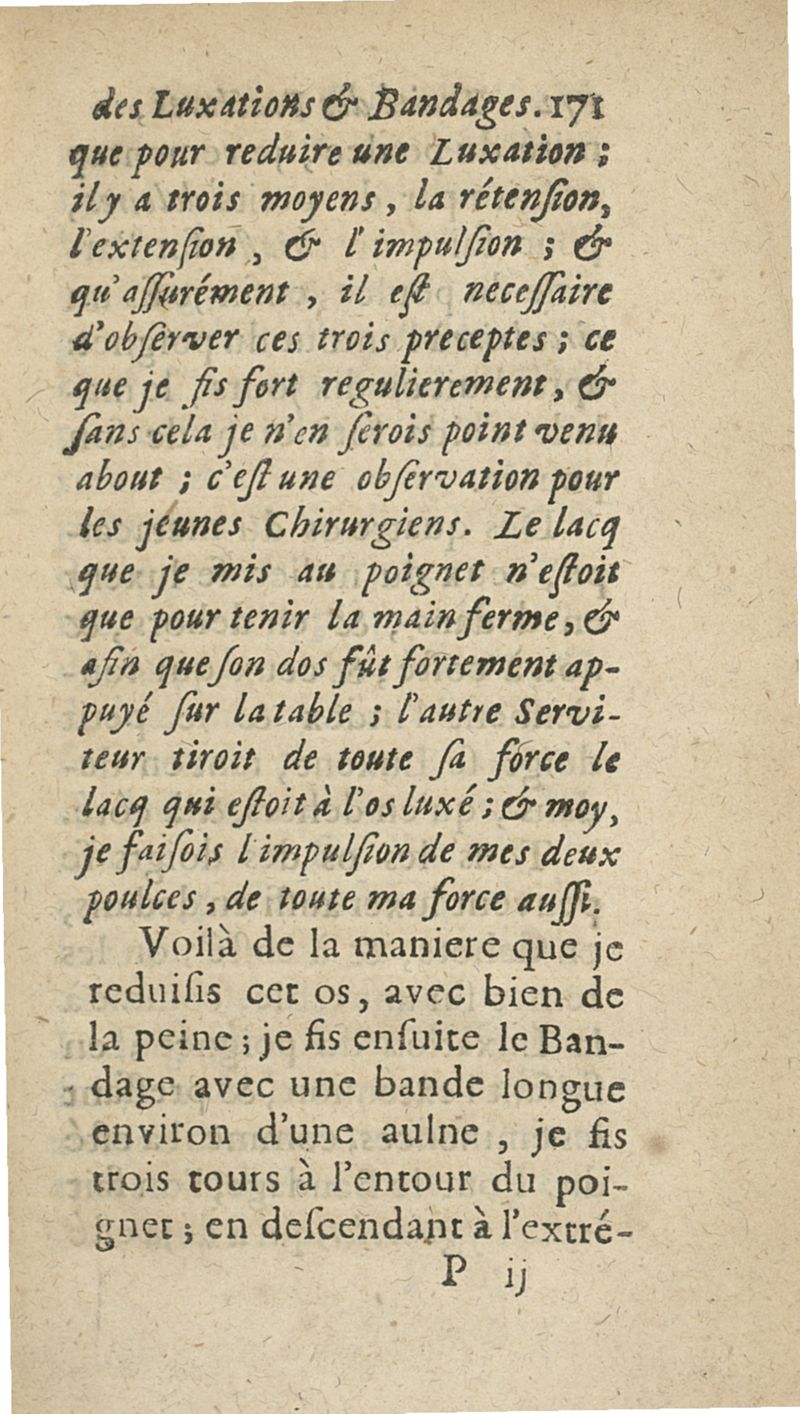 des Luxations & Bandages. 171
que pour reduire une Luxation ;
il y a trois moyens , la rétenſion,
l'extenſion , & l'impulſion ; &
qu'aſſurément , il eſt neceſſaire
d'obſerver ces trois preceptes ; ce
que je fis fort regulierement, &
ſans cela je n'en ſerois point venu
about ; c'eſt une obſervation pour
les jeunes Chirurgiens. Le lacq
que je mis au poignet n'eſtoit
que pour tenir la main ferme, &
afin que ſon dos fût fortement ap-
puyé ſur la table ; l'autre Servi-
teur tiroit de toute ſa force le
lacq qui eſtoit à l'os luxé ; & moy,
je faiſois l'impulſion de mes deux
poulces , de toute ma force auſſi.
Voilà de la maniere que je
reduiſis cet os, avec bien de
la peine ; je fis enſuite le Ban-
dage avec une bande longue
environ d'une aulne , je fis
trois tours à l'entour du poi-
gnet ; en deſcendant à l'extré-
P ij